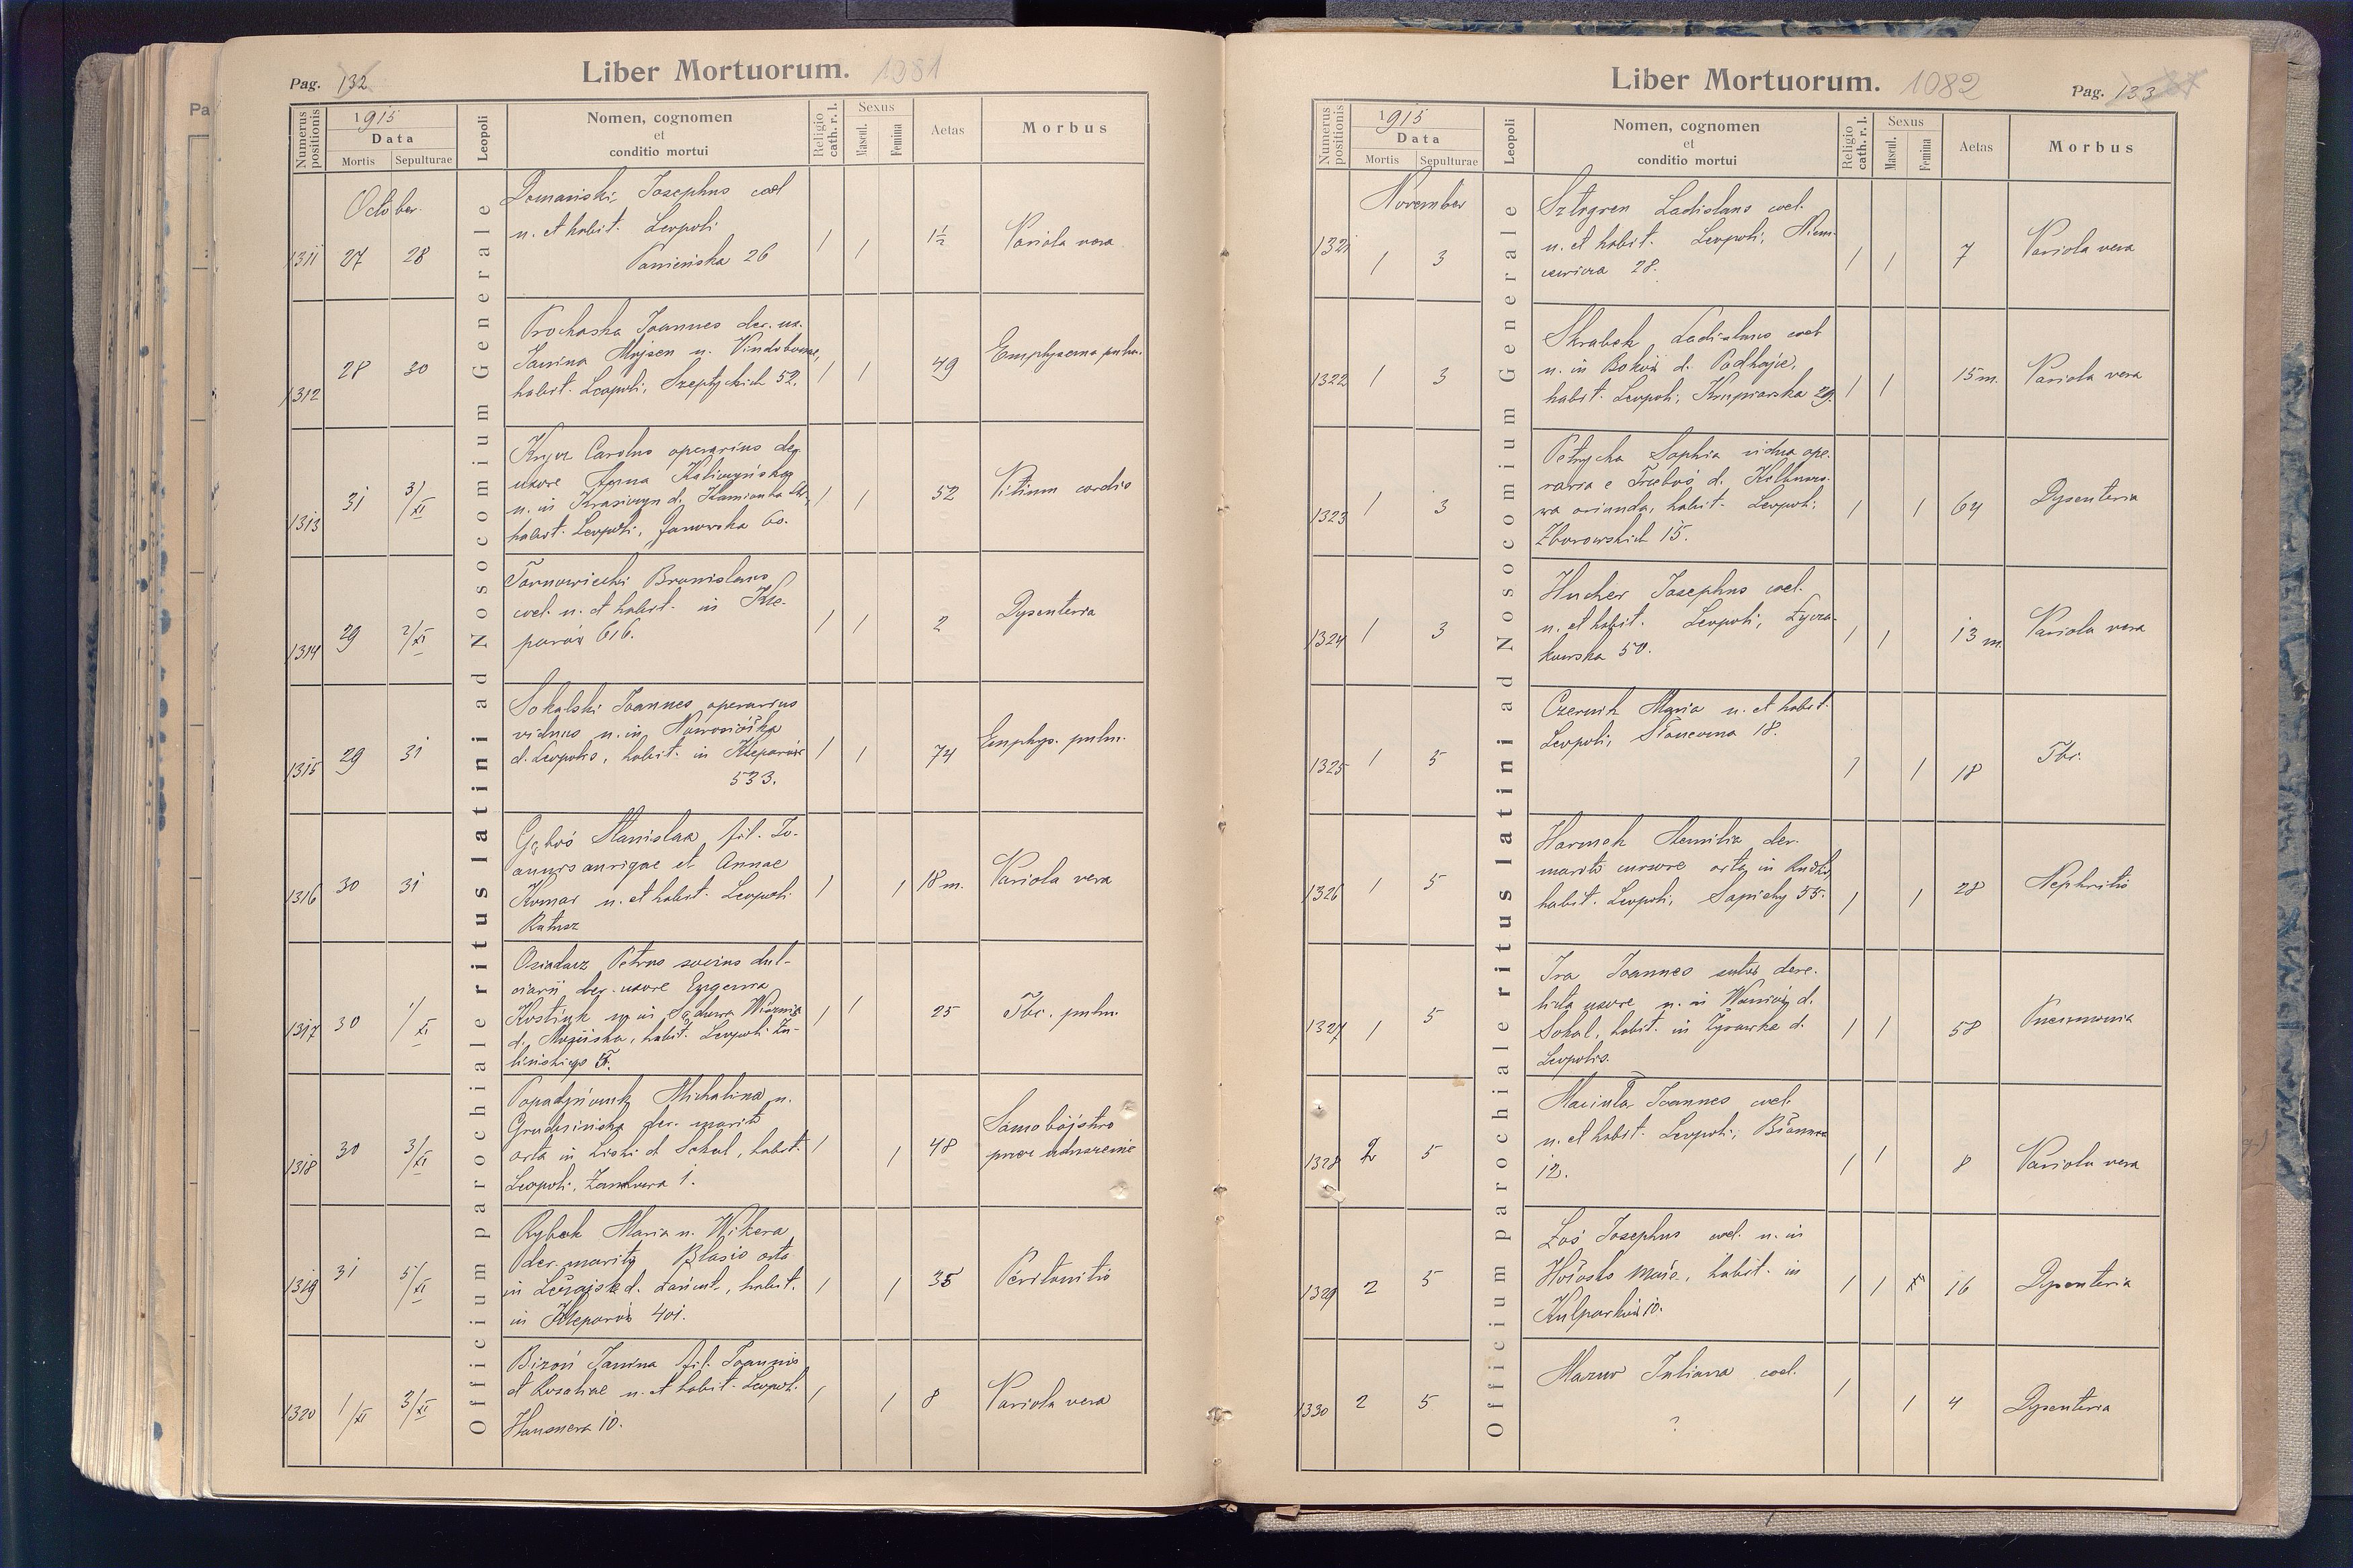 Pag. 132
Liber Mortuorum. 1081
Numerus positionis
1915
Data
Mortis Sepulturae
Leopoli
Nomen, cognomen
et
conditio mortui
Religio cath. r. l.
Sexus
Mascul. Femina
Aetas
Morbus
Officium parochiale ritus latini ad Nosocomium Generale
October
1311 27 28
Domański Josephus coel
n. et habit. Leopoli
Panieńska 26
1 1 1½ Variola vera
1312 28 30
Prochaska Joannes der. ux.
Janina n. Vindobonae,
habit. Leopoli, Szeptyckich 52.
1 1 49 Emphysema pulm.
1313 31 3/XI
Carolus operarius der.
uxore Anna
n. in d. Kamionka
habit. Leopoli, Janowska 60.
1 1 52 Vitium cordis
1314 29 2/XI
Tarnowiecki Bronislaus
coel. n. et habit. in Kle-
parów 616.
1 1 2 Dysenteria
1315 29 31
Sokalski Joannes operarius
viduus n. in
d. Leopolis, habit. in Kleparów
533.
1 1 74 Emphys. pulm.
1316 30 31
Stanislaa, fil. Jo-
annis aurigae et Annae
Komar n. et habit. Leopoli
Ratusz
1 1 18 m. Variola vera
1317 30 1/XI
Osiadacz Petrus socius dul-
ciarii der. uxore Eugenia
Kostiuk n. in Sądowa Wisznia
d. Mościska, habit. Leopoli Zu-
lińskiego
1 1 25 Tbc. pulm.
1318 30 3/XI
Michalina n.
Grudzińska der. marito
orta in Liski d. Sokal, habit.
Leopoli, 1.
1 1 48 Samobójstwo
przez uduszenie
1319 31 5/XI
Rybak Maria n. Wikera
der. marito Blasio orta
in Leżajsk d. Łańcut, habit.
in Kleparów 401.
1 1 35 Peritonitis
1320 1/XI 3/XI
Bizoń Janina fil. Joannis
et Rosaliae n. et habit. Leopoli
Hausnera 10.
1 1 8 Variola vera
Liber Mortuorum. 1082
Pag. 133
Numerus positionis
1915
Data
Mortis Sepulturae
Leopoli
Nomen, cognomen
et
conditio mortui
Religio cath. r. l.
Sexus
Mascul. Femina
Aetas
Morbus
Officium parochiale ritus latini ad Nosocomium Generale
November
1321 1 3
Ladislaus coel.
n. et habit. Leopoli, Niem-
cewicza 28.
1 1 7 Variola vera
1322 1 3
Skrabek Ladislaus coel
n. in Boków d. Podhajce,
habit. Leopoli, Krupiarska 29.
1 1 15 m. Variola vera
1323 1 3
Petrycka Sophia vidua ope-
raria e Trzeboś d. Kolbuszo-
wa oriunda, habit. Leopoli,
Zborowskich 15.
1 1 64 Dysenteria
1324 1 3
Hucher Josephus coel.
n. et habit. Leopoli, Łycza-
kowska 50.
1 1 13 m. Variola vera
1325 1 5
Czernik Maria n. et habit.
Leopoli, Słoneczna 18.
1 1 18 Tbc.
1326 1 5
der.
marito orta in Rudki,
habit. Leopoli, Sapiehy 55.
1 1 28 Nephritis
1327 1 5
Joannes dere-
licta uxore n. in d.
Sokal, habit. in Żyrawka d.
Leopolis.
1 1 58 Pneumonia
1328 2 5
Maciuła Joannes coel.
n. et habit. Leopoli, Błonna
12.
1 1 8 Variola vera
1329 2 5
Łoś Josephus coel. n. in
Hołosko małe, habit. in
Kulparków 10.
1 1 16 Dysenteria
1330 2 5
Mazur Juliana coel.
?
1 1 4 Dysenteria